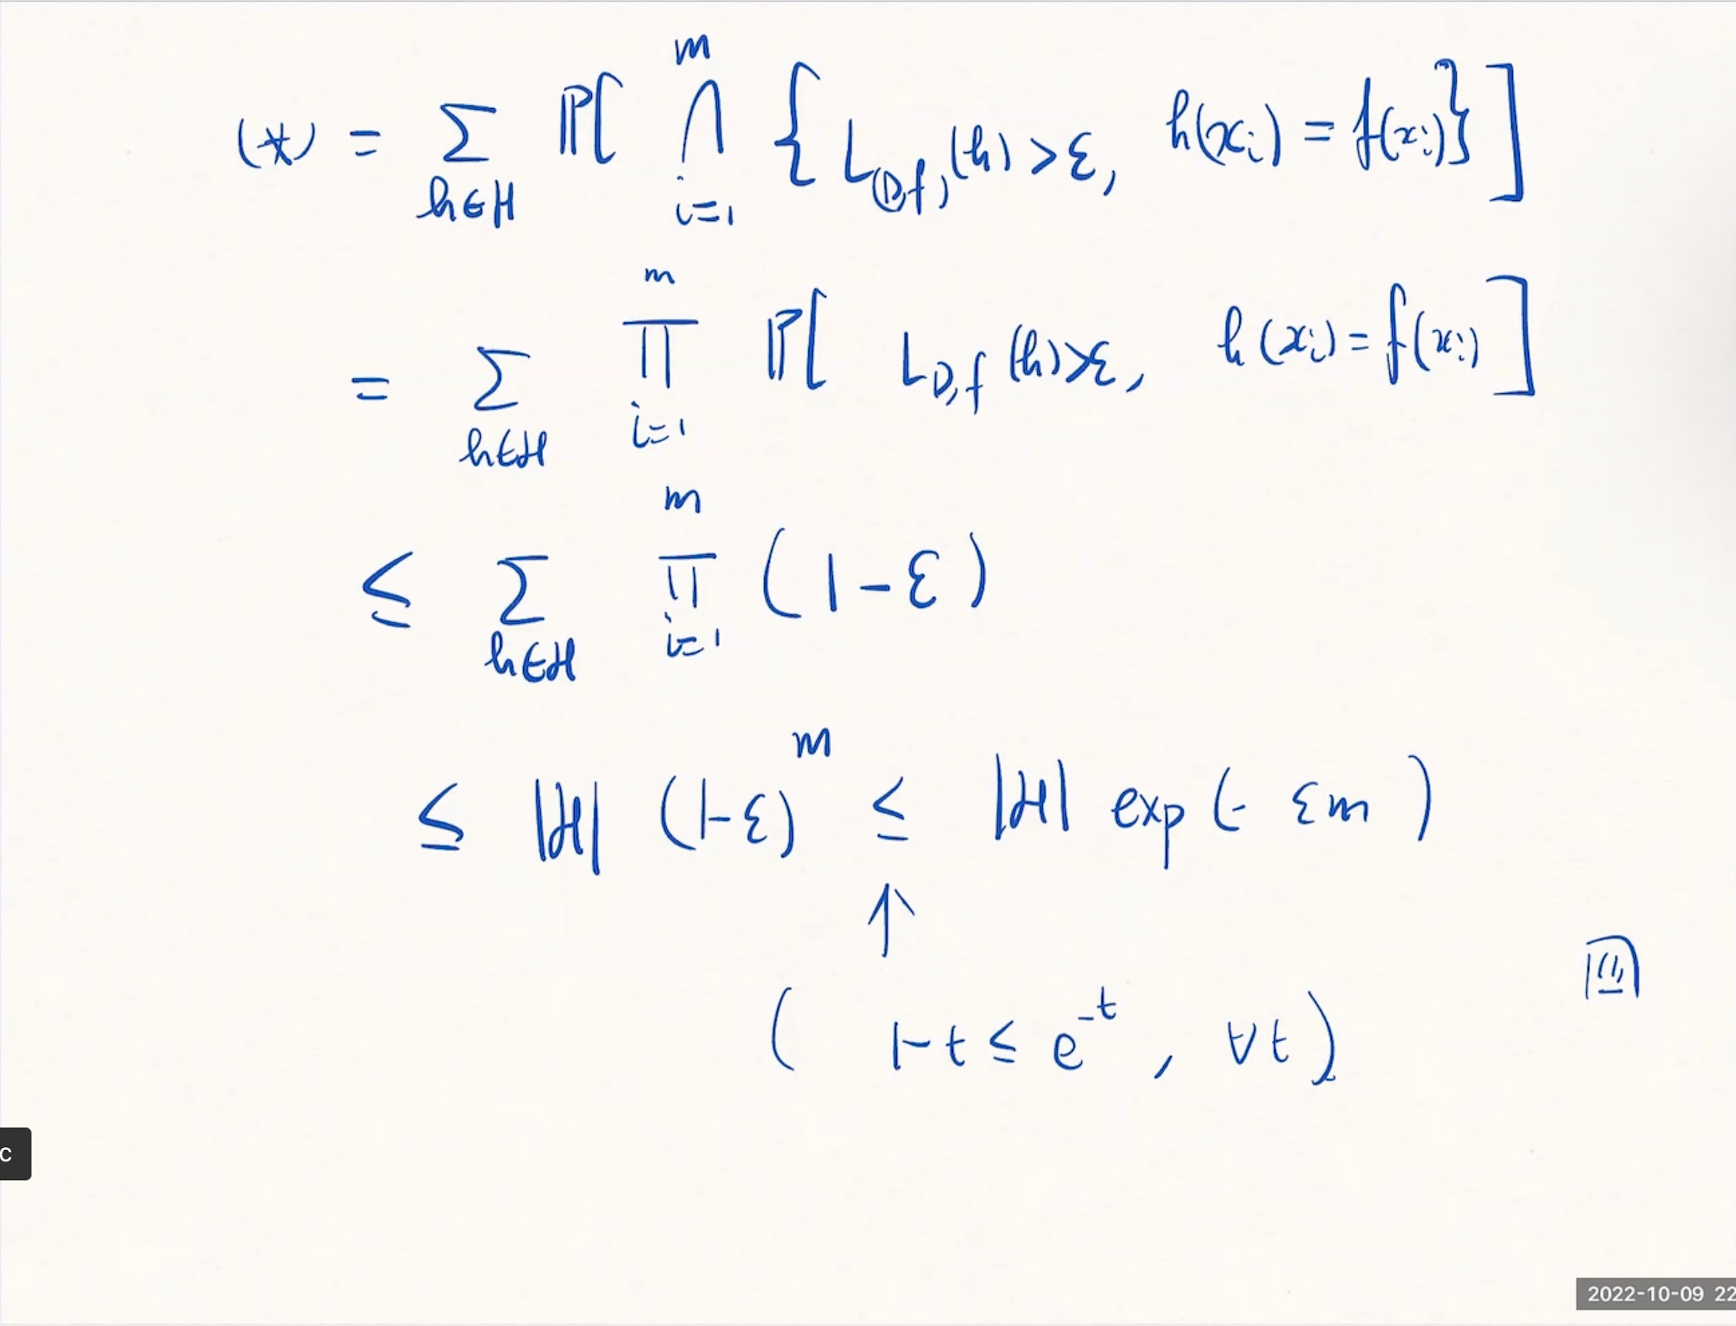 (*) = Σ_{h∈H} ℙ[ ⋂_{i=1}^{m} { L_{(D,f)}(h) > ε, h(x_i) = f(x_i) } ]
= Σ_{h∈ℋ} ∏_{i=1}^{m} ℙ[ L_{D,f}(h) > ε, h(x_i) = f(x_i) ]
≤ Σ_{h∈ℋ} ∏_{i=1}^{m} (1-ε)
≤ |ℋ| (1-ε)^m ≤ |ℋ| exp(- εm)
↑
( 1-t ≤ e^{-t}, ∀t )
c
2022-10-09 22